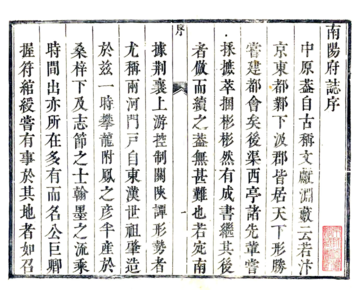 南陽府誌序
中原蓋自古稱文獻淵藪云若汴
京東都鄴下汲郡皆居天下形勝
嘗建都會矣後渠西亭諸先輩嘗
採摭萃捆彬彬然有成書繼其後
者倣而續之蓋無甚難也若宛南
序
據荆襄上游控制關陝譚形勢者
尤稱兩河門戶自東漢世祖肇造
於兹一時攀龍附鳳之彦半產於
桑梓下及志節之士翰墨之流乘
時間出亦所在多有而名公巨卿
握符綰綬嘗有事於其地者如召